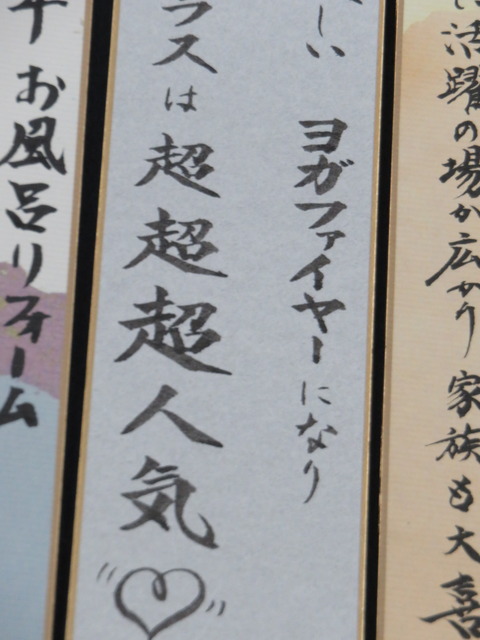 活躍の場が広がり 家族も大喜
しい ヨガファイヤーになり
ラスは超超超人気
お風呂リフォーム